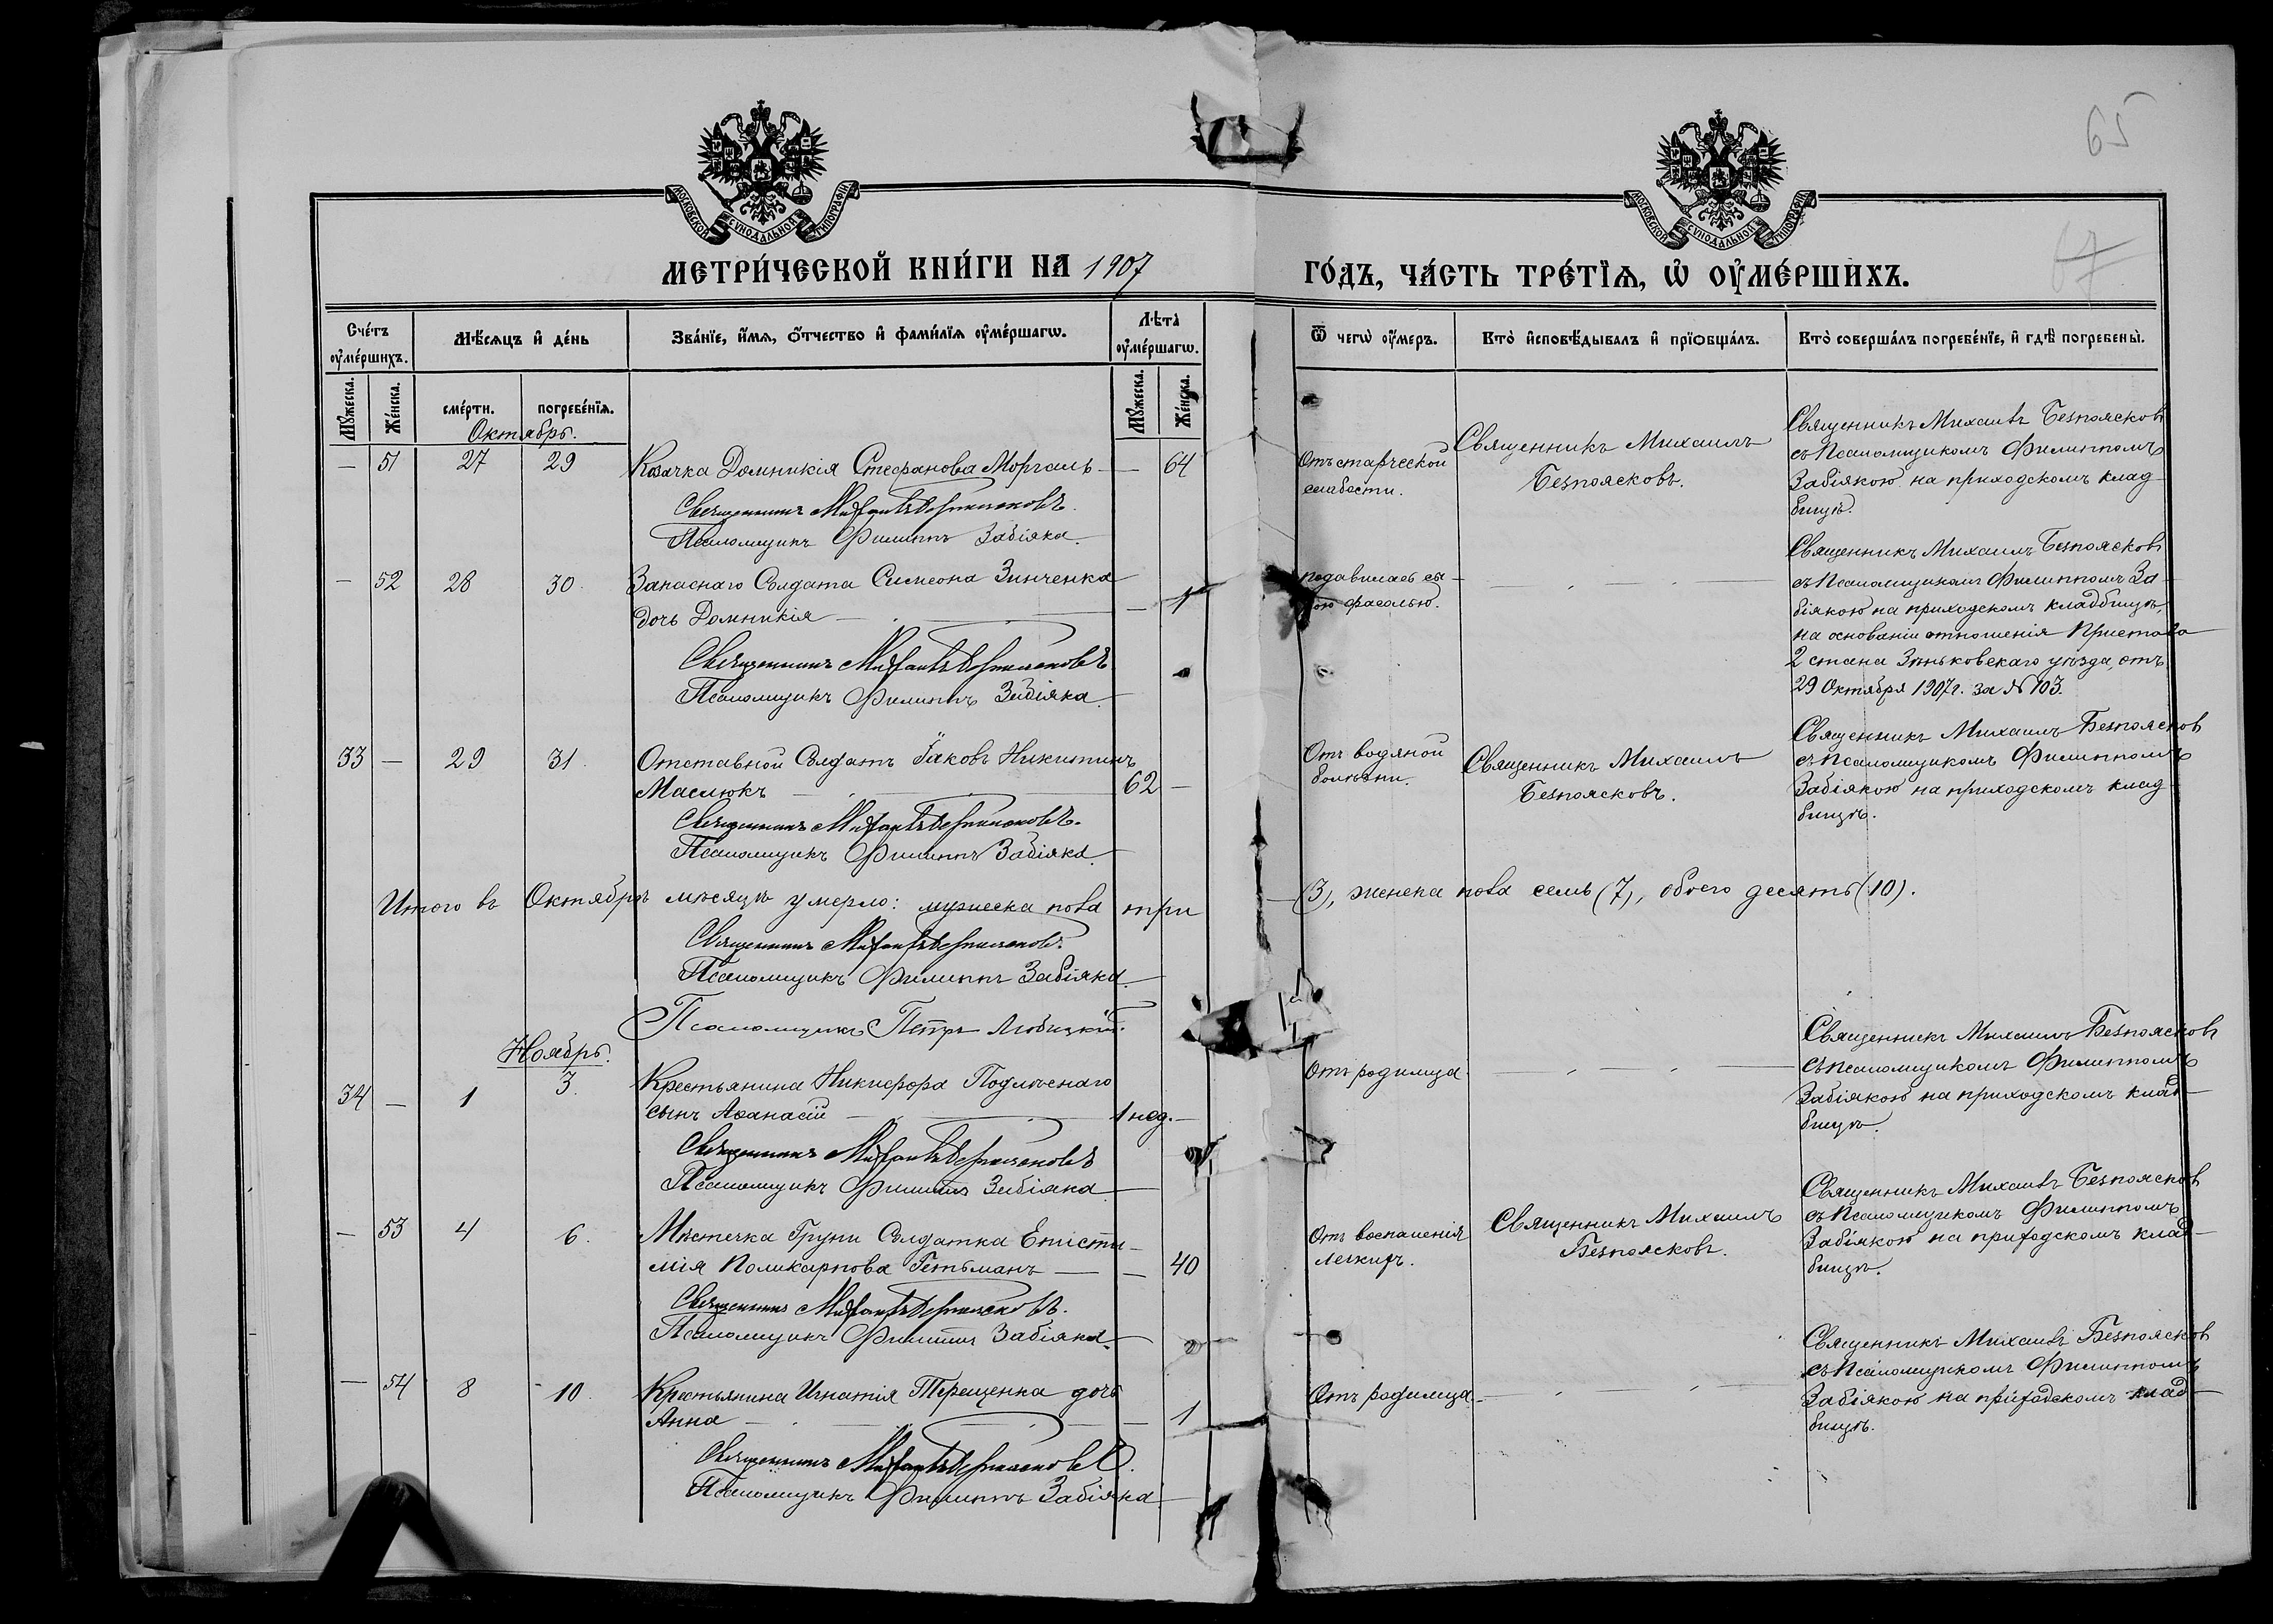 65
67
МОСКОВСКОЙ СУНОДАЛЬНОЙ ТИПОГРАФІИ
МОСКОВСКОЙ СУНОДАЛЬНОЙ ТИПОГРАФІИ
МЕТРИ́ЧЕСКОЙ КНИ́ГИ НА 1907
ГО́ДЪ, ЧА́СТЬ ТРЕ́ТІѦ, Ѡ҆ ОУ҆МЕ́РШИХЪ.
Сче́тъ оу҆ме́ршихъ.
Мѣ́сѧцъ и҆ де́нь
Зва́нїе, и҆́мѧ, ѻ҆́тчество и҆ фами́лїѧ оу҆ме́ршагѡ.
Лѣ̀та оу҆ме́ршагѡ.
Ѿ чегѡ̀ оу҆́меръ.
Кто̀ и҆сповѣ́дывалъ и҆ прїѻбща́лъ.
Кто̀ соверша́лъ погребе́нїе, и҆ гдѣ̀ погребены̀.
Мꙋ́жеска.
Же́нска.
сме́рти.
погребе́нїѧ.
Мꙋ́жеска.
Же́нска.
Октябрь.
— 51 27 29 Козачка Домникія Стефанова Моргаль — 64
Священникъ Михаилъ Безпоясковъ.
Псаломщикъ Филиппъ Забіяка.
Отъ старческой
слабости.
Священникъ Михаилъ
Безпоясковъ.
Священникъ Михаилъ Безпоясковъ
съ Псаломщикомъ Филиппомъ
Забіякою на приходскомъ клад-
бищѣ.
— 52 28 30. Запаснаго Солдата Симеона Зинченка
дочь Домникія — — 1
Священникъ Михаилъ Безпоясковъ
Псаломщикъ Филиппъ Забіяка.
подавилась сы-
рою фасолью.
Священникъ Михаилъ Безпоясковъ
съ Псаломщикомъ Филиппомъ За-
біякою на приходскомъ кладбищѣ,
на основаніи отношенія Пристава
2 стана Зѣньковскаго уѣзда, отъ
29 Октября 1907 г. за № 103.
33 — 29 31. Отставной Солдатъ Іаковъ Никитинъ
Маслюкъ — 62 —
Священникъ Михаилъ Безпоясковъ.
Псаломщикъ Филиппъ Забіяка.
Отъ водяной
болѣзни.
Священникъ Михаилъ
Безпоясковъ.
Священникъ Михаилъ Безпоясков
съ Псаломщикомъ Филиппомъ
Забіякою на приходскомъ клад-
бищѣ.
Итого въ Октябрѣ мѣсяцѣ умерло: мужеска пола три (3), женска пола семь (7), обоего десять (10).
Священникъ Михаилъ Безпоясковъ.
Псаломщикъ Филиппъ Забіяка.
Псаломщикъ Петръ
Ноябрь.
34 — 1 3. Крестьянина Никифора Подлѣснаго
сынъ Аѳанасій — 1 нед. —
Священникъ Михаилъ Безпоясковъ
Псаломщикъ Филиппъ Забіяка
Отъ родимца.
Священникъ Михаилъ Безпоясковъ
съ Псаломщикомъ Филиппомъ
Забіякою на приходскомъ клад-
бищѣ.
— 53 4 6. Мѣстечка Груни Солдатка Епистп-
мія Поликарпова Гетьманъ — — 40
Священникъ Михаилъ Безпоясковъ.
Псаломщикъ Филиппъ Забіяка.
Отъ воспаленія
легкихъ.
Священникъ Михаилъ
Безпоясковъ.
Священникъ Михаилъ Безпоясков
съ Псаломщикомъ Филиппомъ
Забіякою на приходскомъ клад-
бищѣ.
— 54 8 10. Крестьянина Игнатія Терещенка дочь
Анна — — 1
Священникъ Михаилъ Безпоясковъ.
Псаломщикъ Филиппъ Забіяка.
Отъ родимца —
Священникъ Михаилъ Безпоясков
съ Псаломщикомъ Филиппомъ
Забіякою на приходскомъ клад-
бищѣ.